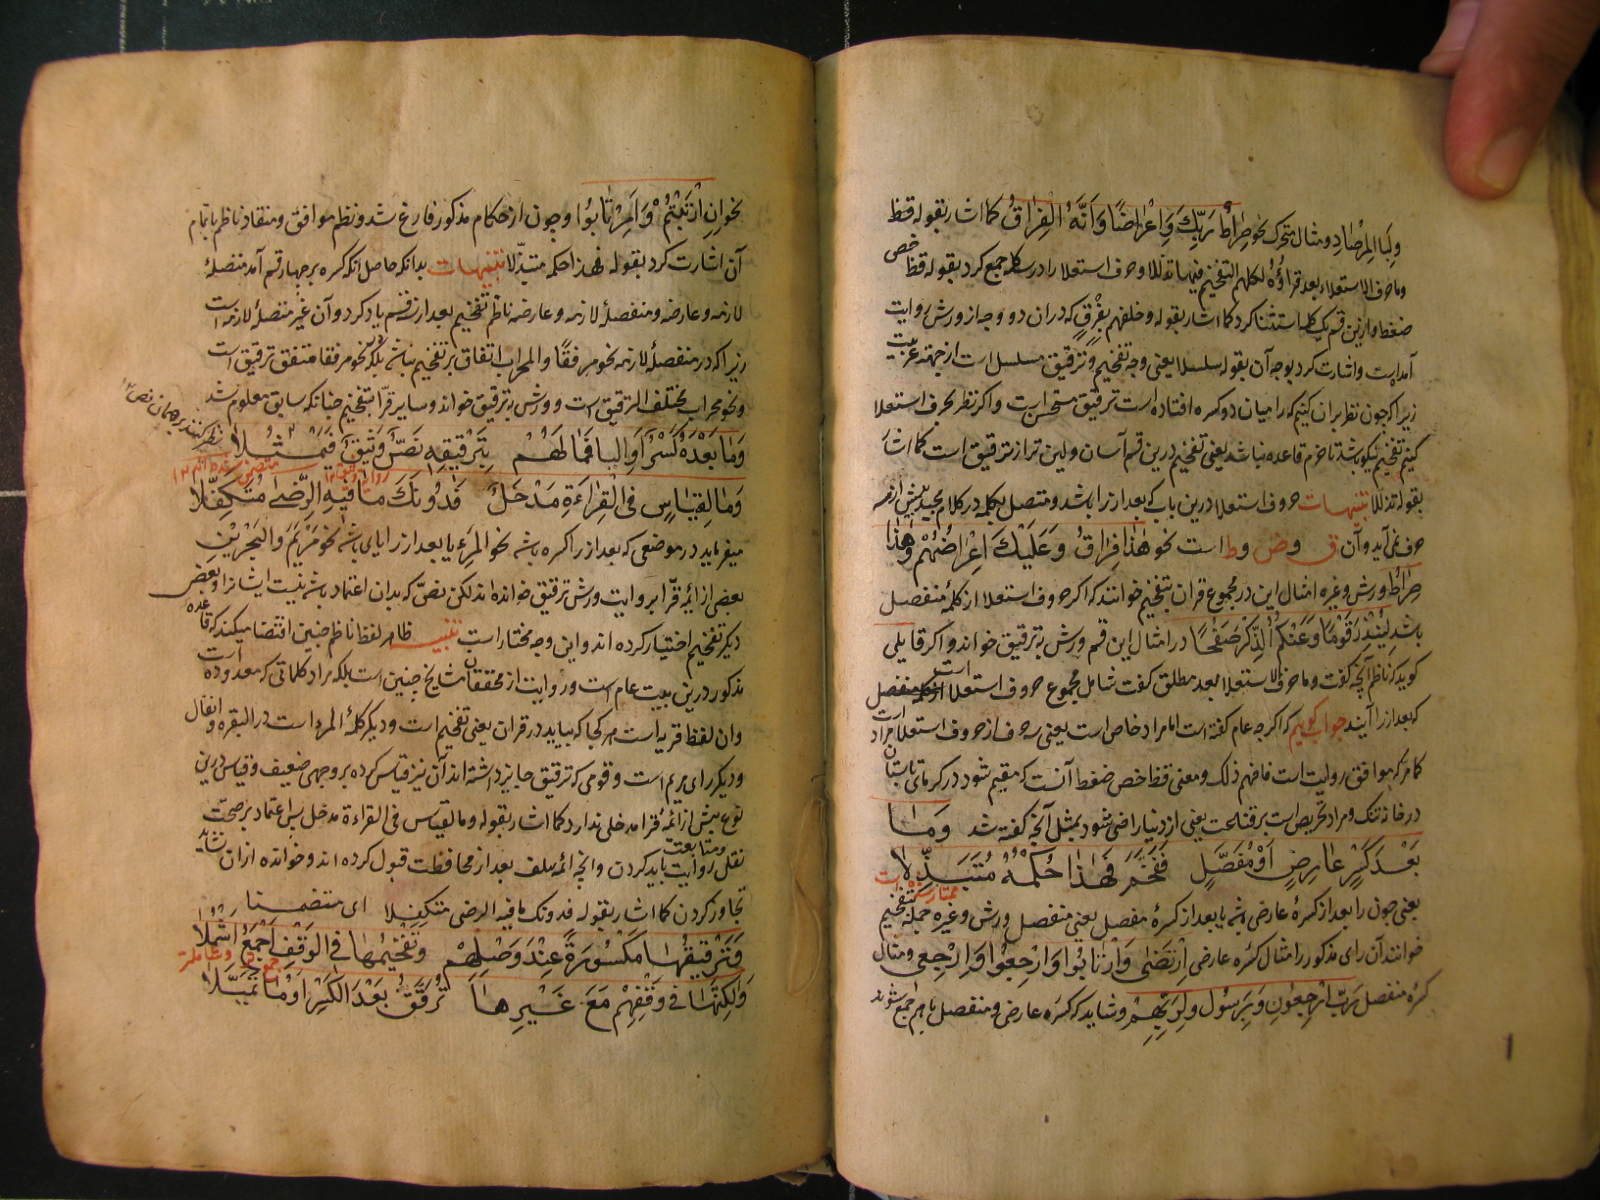 ولبالمرصاد ومثال متحرک نحو صراط ربّک واعراضًا وانّه الفراق کما اشار بقوله قظ
وما حرف الاستعلاء بعد فراؤه لکلهم التفخیم فیها تذللا وحرف استعلا را در سه کلمه جمع کرد بقوله قظ خص
ضغط وازین قسم یک کلمه استثنا کرد کما اشار بقوله وخلفهم بفرق که دران دو وجه از ورش روایت
آمده است واشارت کرد بوجه آن بقوله سلسلا یعنی وجه تفخیم وترقیق مسلسل است از جهة عربیت
زیرا که چون نظر بران کنیم که را میان دو کسره افتاده است ترقیق مستحسن است واکر نظر بحرف استعلا
کنیم تفخیم نیکو باشد تا خرم قاعده نباشد یعنی تفخیم درین قسم آسان ولین تر از ترقیق است کما اشار
بقوله تذللا تنبیهات حروف استعلا درین باب که بعد از را باشد ومتصل بکلمه در کلام مجید بیش از سه
حرف نمی آید وآن ق وض وط است نحو هٰذا فراق وعلیک اعراضهم وهٰذا
صراط ورش وغیره امثال این در مجموع قران بتفخیم خوانند که اکر حروف استعلا از کلمه منفصل
باشد لینذر قومًا وعنکم الذکر صفحًا در امثال این قسم ورش بترقیق خواند واکر قایلی
کوید که ناظم آنچه کفت وما حرف الاستعلا بعد مطلق کفت شامل مجموع حروف استعلا است از کلمه منفصل
که بعد از را آیند جواب کویم که اکرچه عام کفته است اما مراد خاص است یعنی سه حرف از حروف استعلا مراد است
کامر که موافق روایت است فافهم ذلک ومعنی قظ خص ضغط آنست که مقیم شود در کرمای تابستان
در خانه تنک ومراد تحریص است بر قناعت یعنی از دنیا راضی شود بمثل آنچه کفته شد وما
بعد کسر عارض او مفصّل ففخّم فهٰذا حکمه متبذّلا
یعنی چون را بعد از کسرهٔ عارضی باشد یا بعد از کسرهٔ مفصل یعنی منفصل ورش وغیره جمله بتفخیم
خوانند آن رای مذکور را مثال کسره عارضی ارتضی وارتابوا وارجعوا وارجعی ومثال
کسره منفصل ربّ ارجعون وبرسول ولربهم وشاید که کسره عارضی ومنفصل باهم جمع شوند
نحو ان ارتبتم وام ارتابوا وچون از حکام مذکور فارغ شد ونظم موافق ومنقاد ناظم باتمام
آن اشارت کرد بقوله فهذا حکمه متبذّلا تنبیهات بدانکه حاصل آنکه کسره بر چهار قسم آمد متصلهٔ
لازمه وعارضه ومنفصلهٔ لازمه وعارضه ناظم تفخیم بعد از سه قسم یاد کرد وآن غیر متصلهٔ لازمه است
زیرا که در منفصلهٔ لازمه نحو مرفقًا والمحراب اتفاق بر تفخیم نباشد بلکه نحو مرفقا متفق ترقیق است
ونحو محراب مختلف الترقیق است وورش بترقیق خواند وسایر قرّا بتفخیم چنانکه سابق معلوم شد
وما بعده کسر او الیا فما لهم بترقیقه نصّ وثیق فیمثلا
وما لقیاس فی القراءة مدخل فدونک ما فیه الرضی متکفّلا
میفرماید در موضعی که بعد از را کسره باشد نحو المرء یا بعد از را یای باشد نحو مریم والبحرین
بعضی از ائمه قرّا بروایت ورش ترقیق خوانده اند لکن نصّ که بدان اعتماد باشد نیست ایشانرا وبعض
دیکر تفخیم اختیار کرده اند واین وجه مختار است تنبیه ظاهر لفظ ناظم چنین اقتضا میکند که قاعده
مذکور درین بیت عام است وروایت از محققان مشایخ چنین است بلکه مراد کلماتی که معدوده است
وان لفظ قریه است هر کجا که بیاید در قران یعنی تفخیم است ودیکر کلمهٔ المرء است در البقره وانفال
ودیکر رای مریم است وقومی که ترقیق جایز داشته اند آن نیز قیاس کرده بر وجهی ضعیف وقیاس درین
نوع پیش از ائمهٔ قرا مدخلی ندارد کما اشار بقوله وما لقیاس فی القراءة مدخل پس اعتماد بر صحت
نقل روایت ومتابعت باید کردن وانچه ائمه سلف بعد از محافظت قبول کرده اند وخوانده ازان نشاید
تجاوز کردن کما اشار بقوله فدونک ما فیه الرضی متکفلا ای متضمنا
وترقیقها مکسورة عند وصلهم وتفخیمها فی الوقف اجمع اشملا
ولکنها فی وقفهم مع غیرها ترقّق بعد الکسر او ما تمیّلا